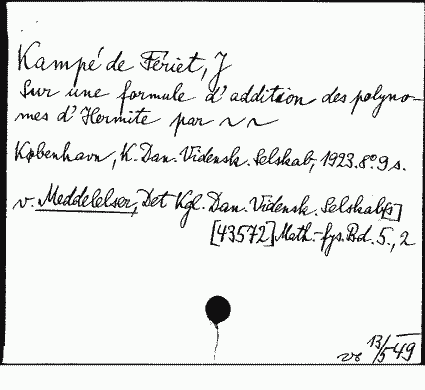 Kampé de Fériet, J
Sur une formule d'addition des polyno-
mes d'Hermite par ~ ~
København, K. Dan. Vidensk. Selskab, 1923. 8° 9 s.
v. Meddelelser, Det Kgl. Dan. Vidensk. Selskab[s]
[43572] Math.-fys. Bd. 5., 2
13/5 49